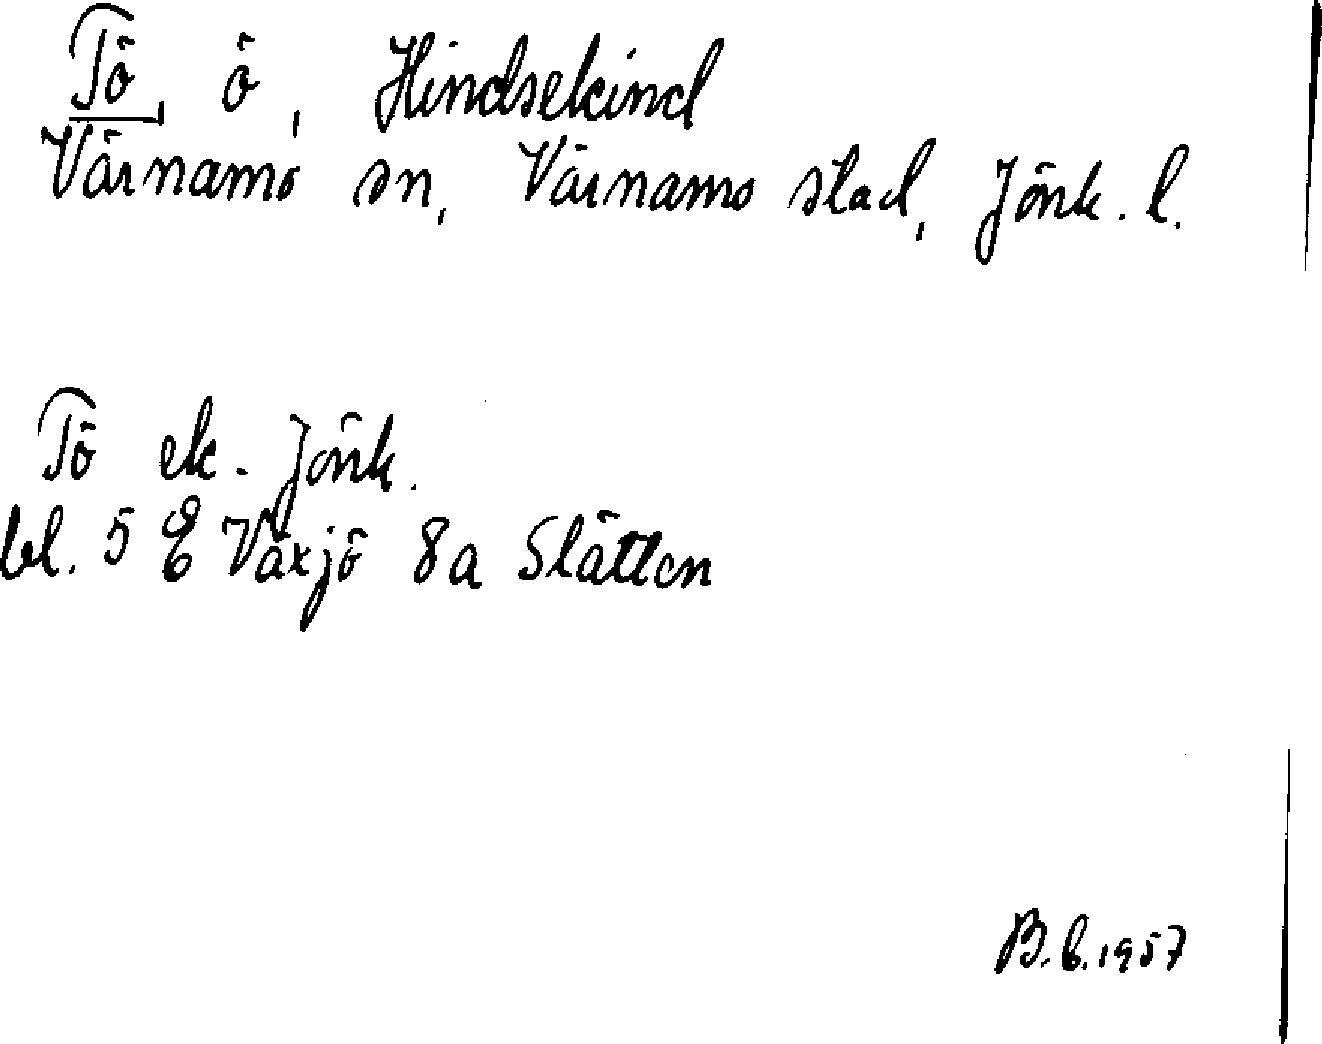 Tö, ö, Hindsekind
Värnamo sn, Värnamo stad, Jönk. l.
Tö ek. Jönk.
bl. 5 E Växjö 8a Slätten
B. b. 1957